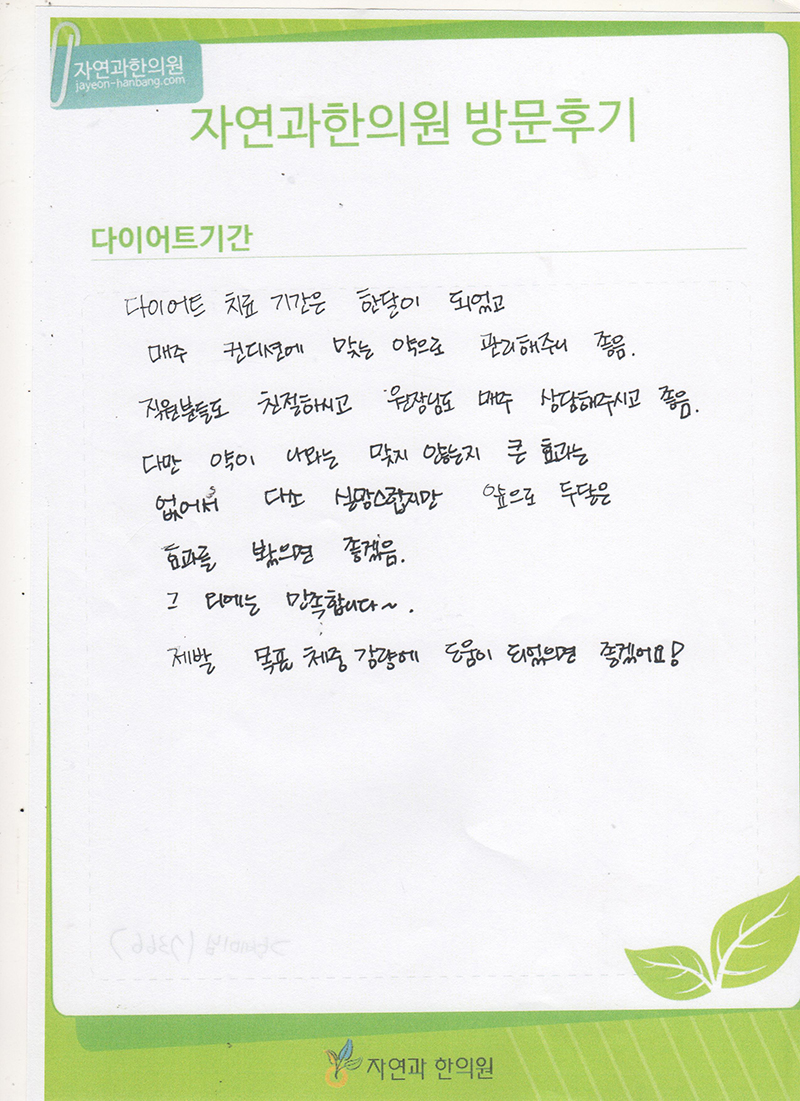 자연과한의원
jayeon-hanbang.com
자연과한의원 방문후기
다이어트기간
다이어트 치료 기간은 한달이 되었고
매주 컨디션에 맞는 약으로 관리해주니 좋음.
직원분들도 친절하시고 원장님도 매주 상담해주시고 좋음.
다만 약이 나와는 맞지 않는지 큰 효과는
없어서 다소 실망스럽지만 앞으로 두달은
효과를 봤으면 좋겠음.
그 외에는 만족합니다~.
제발 목표 체중 감량에 도움이 되었으면 좋겠어요!
자연과 한의원